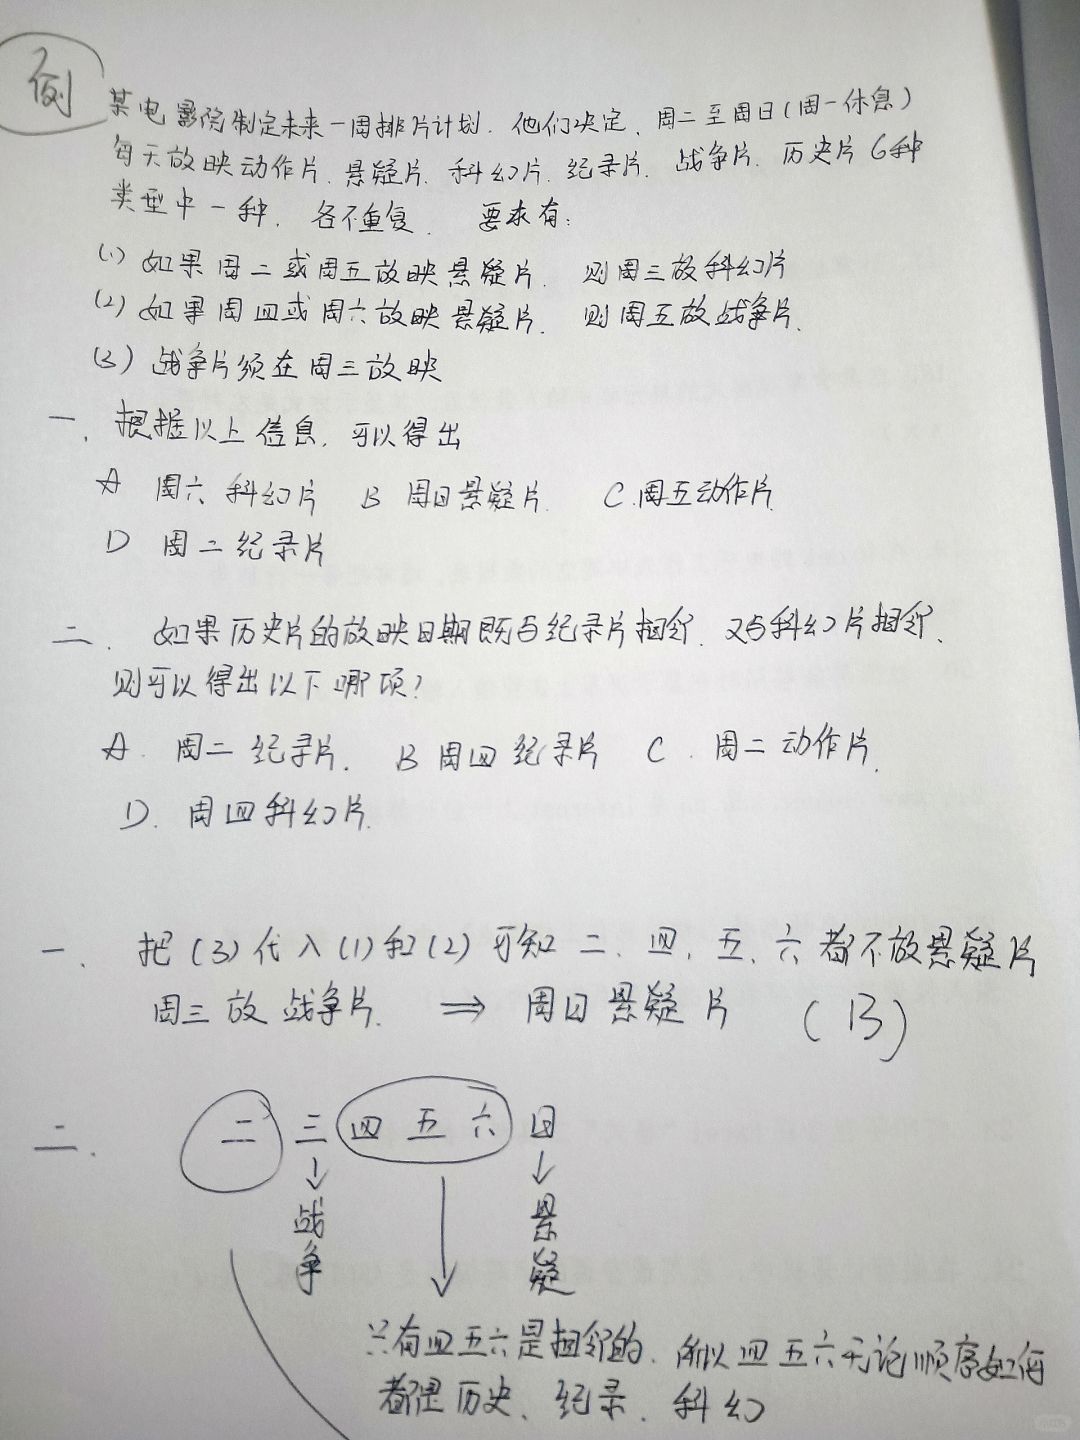 例
某电影院制定未来一周排片计划. 他们决定、周二至周日(周一休息)
每天放映动作片、悬疑片、科幻片、纪录片、战争片、历史片6种
类型中一种, 各不重复. 要求有:
(1) 如果周二或周五放映悬疑片. 则周三放科幻片
(2) 如果周四或周六放映悬疑片. 则周五放战争片.
(3) 战争片须在周三放映
一、根据以上信息, 可以得出
A 周六科幻片 B 周日悬疑片. C.周五动作片.
D 周二纪录片
二. 如果历史片的放映日期既与纪录片相邻、又与科幻片相邻、
则可以得出以下哪项?
A. 周二纪录片. B 周四纪录片 C. 周二动作片.
D. 周四科幻片.
一、把(3)代入(1)和(2)可知二、四、五、六都不放悬疑片
周三放战争片. ⇒ 周日悬疑片 (B)
二. 二 三 四 五 六 日
↓ ↓ ↓
战争 悬疑
只有四五六是相邻的、所以四五六无论顺序如何
都是历史、纪录、科幻